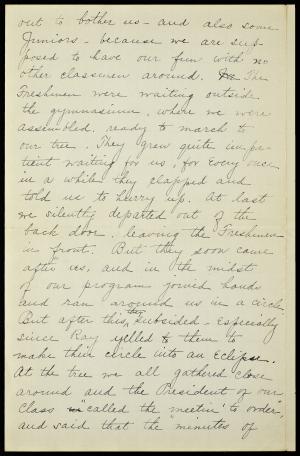 out to bother us - and also some
Juniors - because we are sup-
posed to have our fun with no
other classmen around. The
Freshmen were waiting outside
the gymnasium, where we were
assembled, ready to march to
our tree. They grew quite impa-
tient waiting for us, for every once
in a while they clapped and
told us to hurry up. At last
we silently departed out of the
back door, leaving the Freshmen
in front. But they soon came
after us, and in the midst
of our program joined hands
and ran around us in a circle.
But after this, they subsided - especially
since Ray yelled to them to
make their circle into an Eclipse.
At the tree we all gathered close
around and the President of our
Class "called the meetin' to order",
and said that the "minutes of